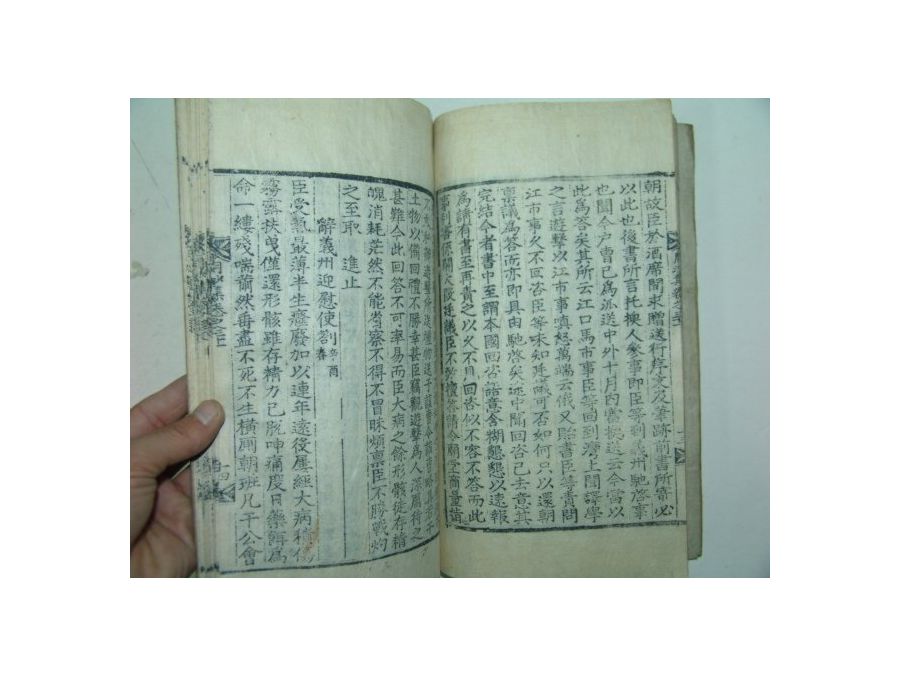 朝故臣於酒席間求贈送行序文及筆跡前書所第必
以此也後書所言托換人參事即臣等到義州馳啓事
也聞今戶曹已爲派送中外十月內當撥送云今當以
此爲答矣其所云江口馬市事臣等回到灣上聞譯學
之言遊擊以江市事嗔怒萬端云俄又貽書臣等責問
江市事久不回咨臣等味知廷議可否如何只以還朝
稟議爲答而亦即具由馳啓矣途中聞回咨已去意其
完結今者書中至謂本國回咨語意含糊懇懇以速報
爲請有書至再責之以久不見回咨似不容不答而此
事利害係關
廷議臣不敢
土物以備回禮不勝幸甚臣竊觀遊擊爲人
甚難今此回答不可率易而臣大病之餘形骸徒存精
魄消耗茫然不能省察不得不冒昧煩稟臣不勝戰灼
之至取 進止
辭義州迎慰使劄 辛酉春
臣受氣最薄半生癃廢加以連年遠役屢經大病積傷
霧露扶曳僅還形骸雖存精力已脫呻痛度日藥餌爲
命一縷殘喘薾然垂盡不死不生橫廁朝班凡干公會
十四